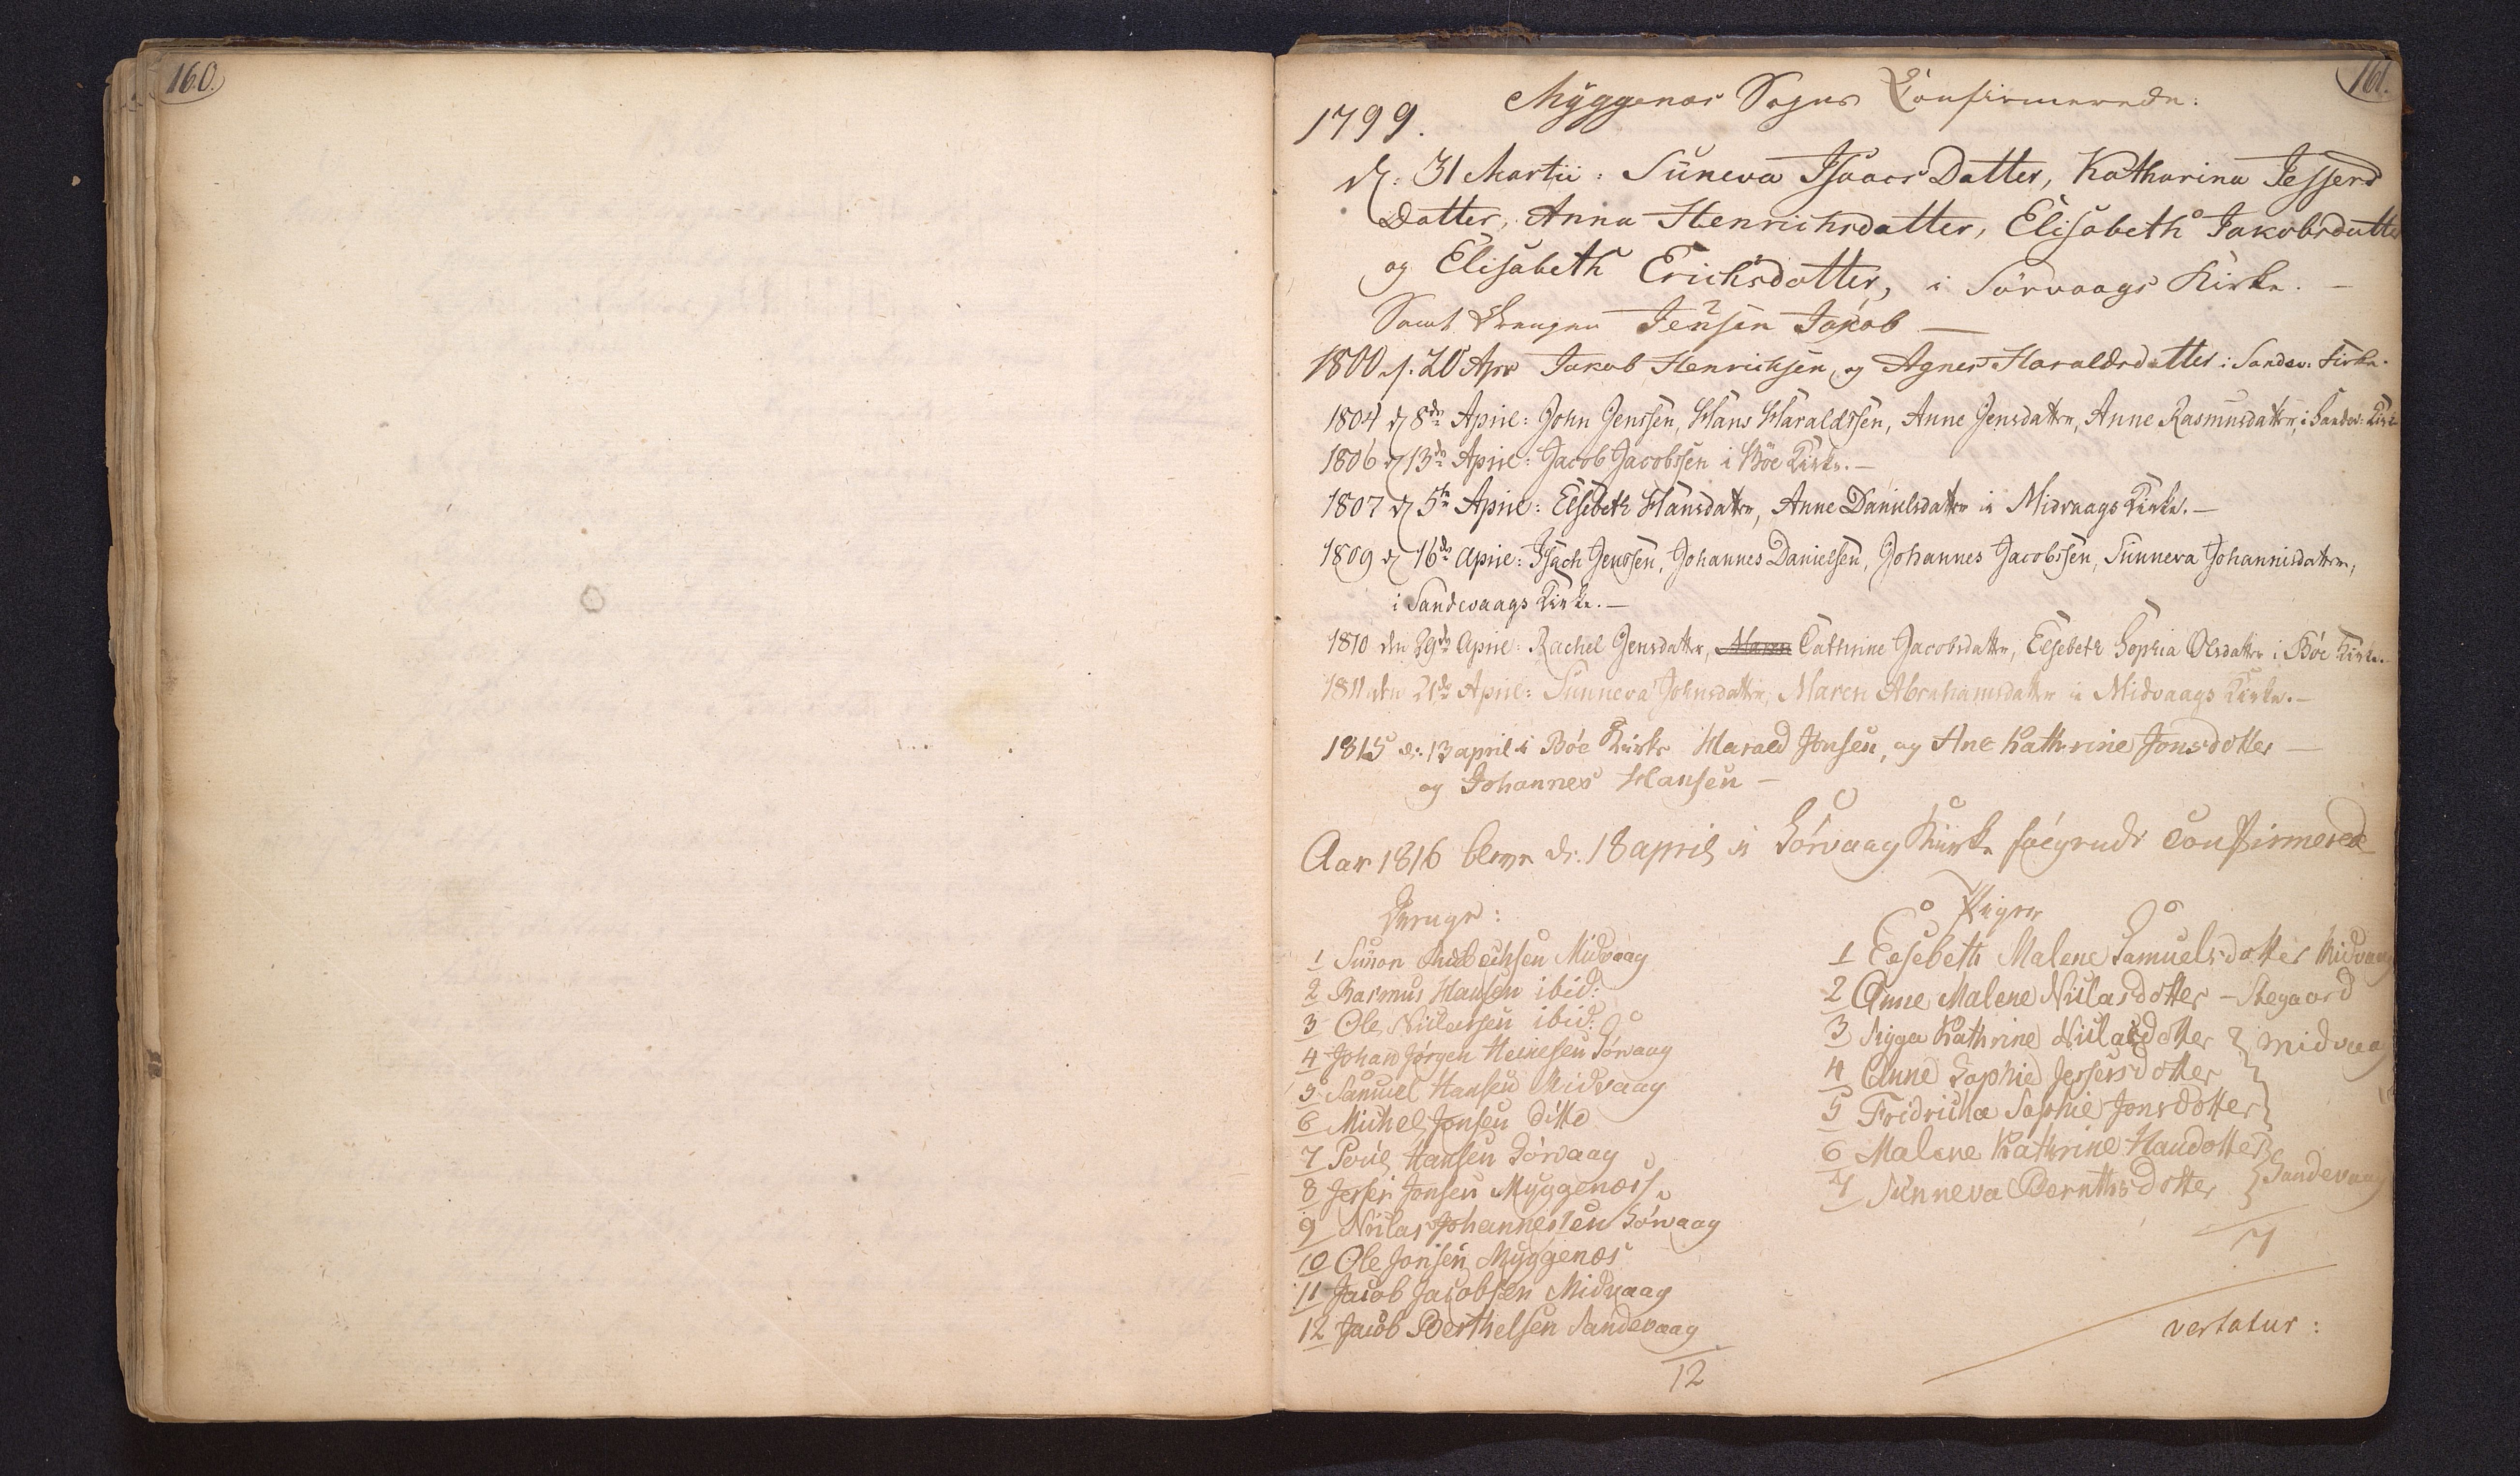 160.
161.
Myggenæs Sogns Confirmerede:
1799.
d: 31 Martii: Suneva Isaacs Datter, Katharina Jessers
Datter, Anna Henrichsdatter, Elisabeth Jakobsdatter
og Elisabeth Erichsdatter, i Sørvaags Kirke. —
Samt Drengen Jensen Jakob —
1800 d. 20 Apr Jakob Henrichsen, og Agnes Haraldsdatter i Sandev: Kirke.
1804 d 8de April: John Jenssen, Hans Haraldssen, Anne Jensdatter, Anne Rasmusdatter, i Sandev: Kirke
1806 d 13de April: Jacob Jacobssen i Böe Kirke. —
1807 d 5te April: Elsebeth Hansdatter, Anne Danielsdatter i Midvaags Kirke. —
1809 d 16de April: Isach Jenssen, Johannes Danielsen, Johannes Jacobssen, Sunneva Johannisdatter,
i Sandevaags Kirke. —
1810 den 29de April: Rachel Jensdatter, Maren Cathrine Jacobsdatter, Elsebeth Sophia Olsdatter i Bøe Kirke. —
1811 den 21de April: Sunneva Johnsdatter, Maren Abrahamsdatter i Midvaags Kirke. —
1815 d: 13 april i Bøe Kirke Harald Jonsen, og Ane Kathrine Jonsdotter —
og Johannes Hansen —
Aar 1816 bleve d: 18 april i Sørvaag Kirke følgende Confirmered
Drenge:
1 Simon Midvaag
2 Rasmus Hansen ibid:
3 Ole Niclassen ibid:
4 Johan Jørgen Heinesen Sørvaag
5 Samuel Hansen Midvaag
6 Michel Jonsen ditto
7 Poul Hansen Sørvaag
8 Jesser Jonsen Myggenæss
9 Niclas Johannessen Sørvaag
10 Ole Jonsen Myggenæs
11 Jacob Jacobsen Midvaag
12 Jacob Berthelsen Sandevaag
12
Piger
1 Elsebeth Malene Samuelsdotter Midvaag
2 Anne Malene Niclasdotter — Stegaard
3 Sigga Kathrine Niclasdotter } Midvaag
4 Anne Sophie Jessersdotter
5 Fridricka Sophie Jonsdotter
6 Malene Kathrine Hansdotter
7 Sunneva Bernthsdotter } Sandevaag
7
vertatur: